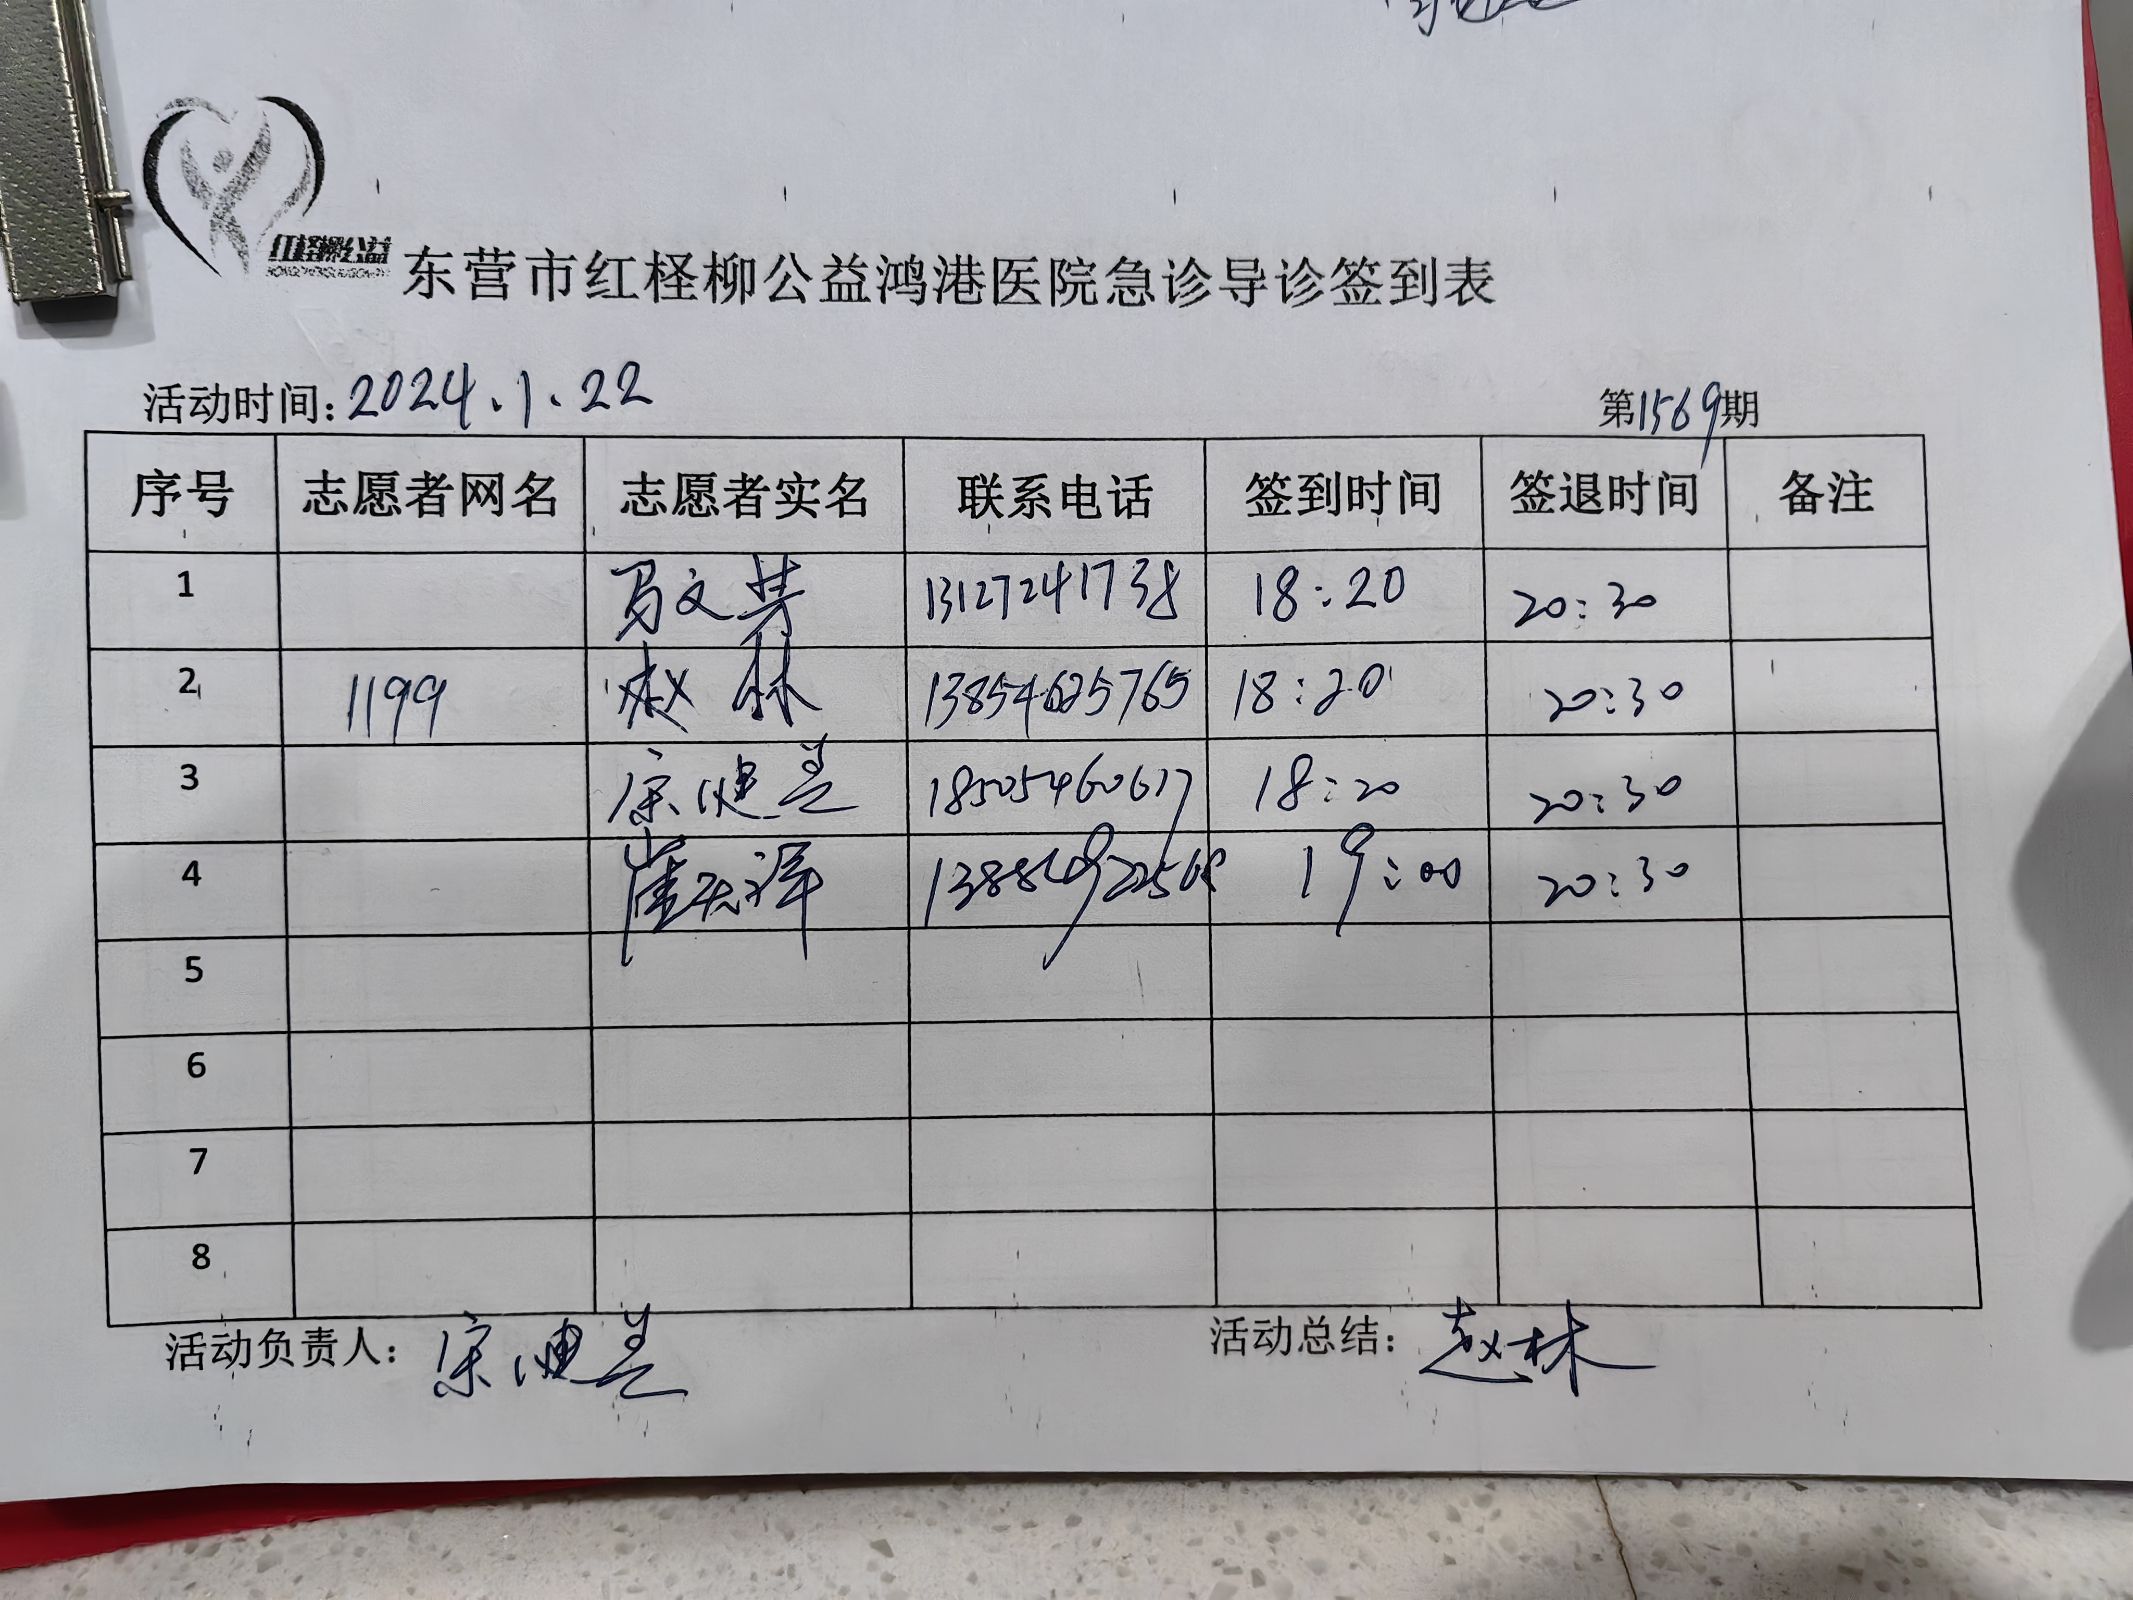 红柽柳公益
东营市红柽柳公益鸿港医院急诊导诊签到表
活动时间：2024.1.22 第1569期
序号 志愿者网名 志愿者实名 联系电话 签到时间 签退时间 备注
1 马文芳 13127241738 18:20 20:30
2 1199 赵林 13854625765 18:20 20:30
3 宋健美 18505460617 18:20 20:30
4 崔天泽 19:00 20:30
5
6
7
8
活动负责人：宋健美 活动总结：赵林